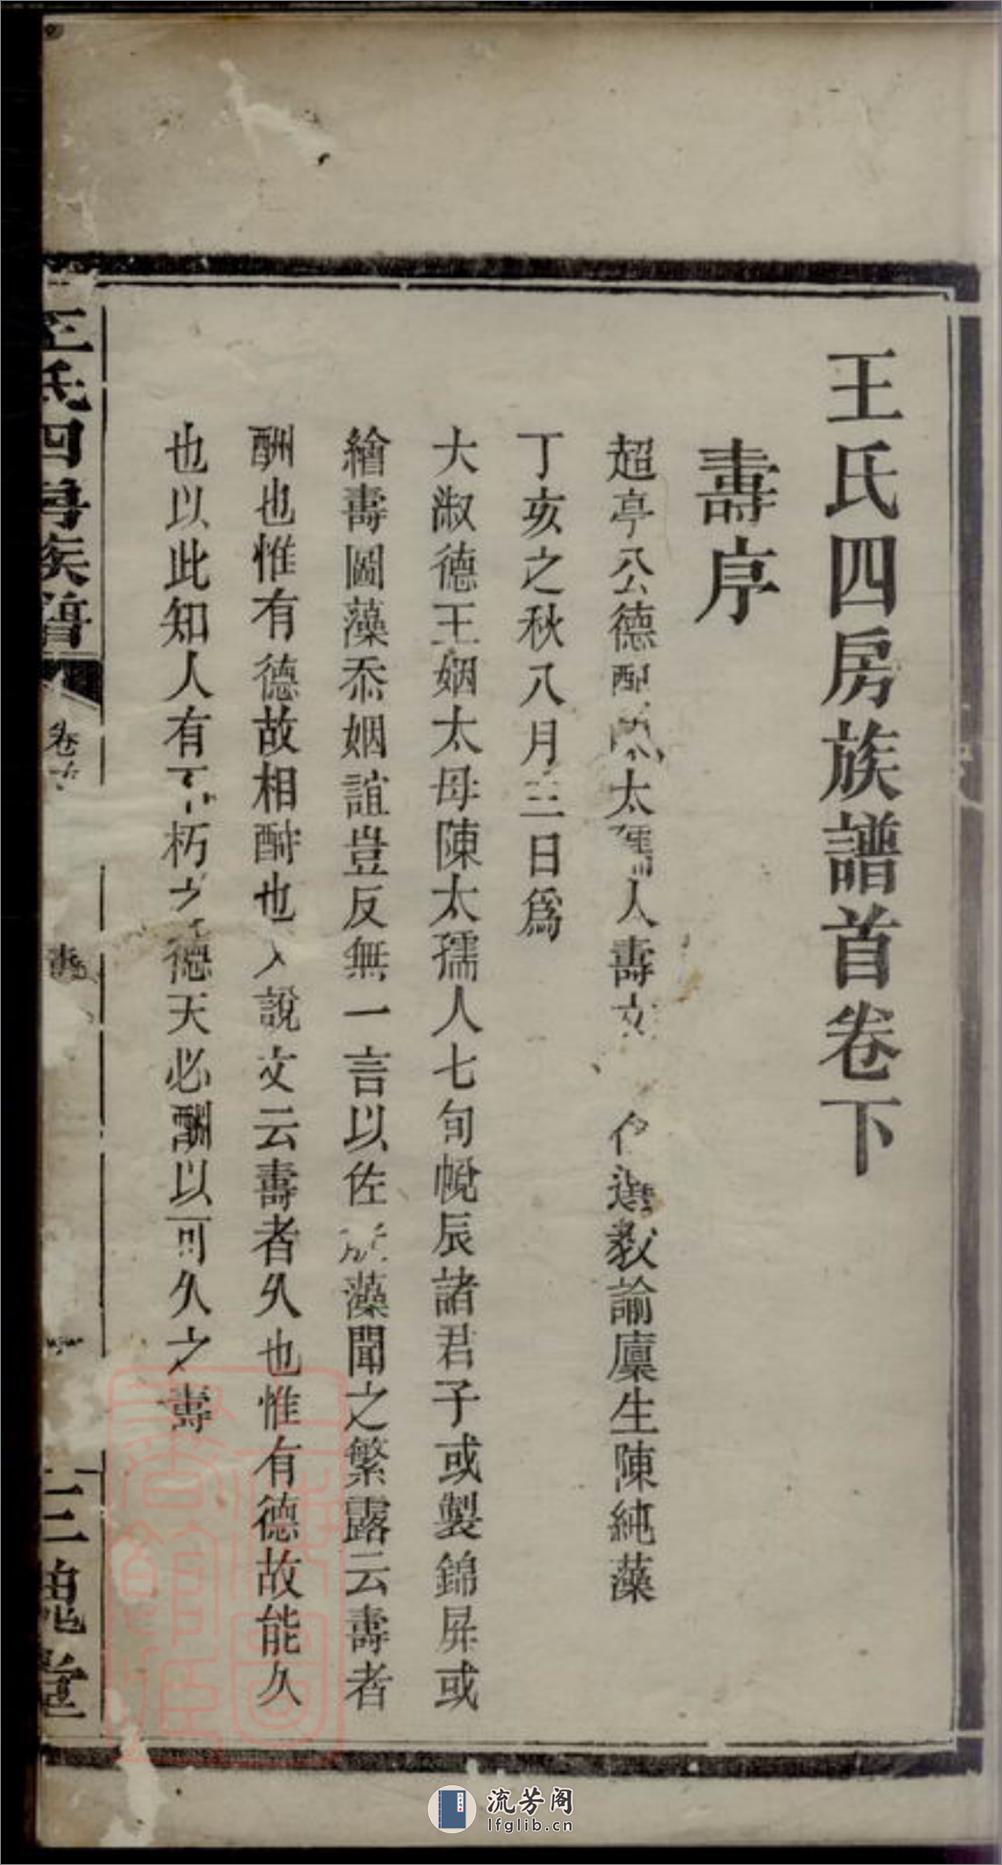 王氏四房族譜首卷下
壽序
超亭公德配陳太孺人壽文 候選教諭廩生陳純藻
丁亥之秋八月三日爲
大淑德王姻太母陳太孺人七旬帨辰諸君子或製錦屏或
繪壽圖藻忝姻誼豈反無一言以佐 藻聞之繁露云壽者
酬也惟有德故相酬也 說文云壽者久也惟有德故能久
也以此知人有不朽之德天必酬以可久之壽
王氏四房族譜
卷
三槐堂
流芳阁
lfglib.cn